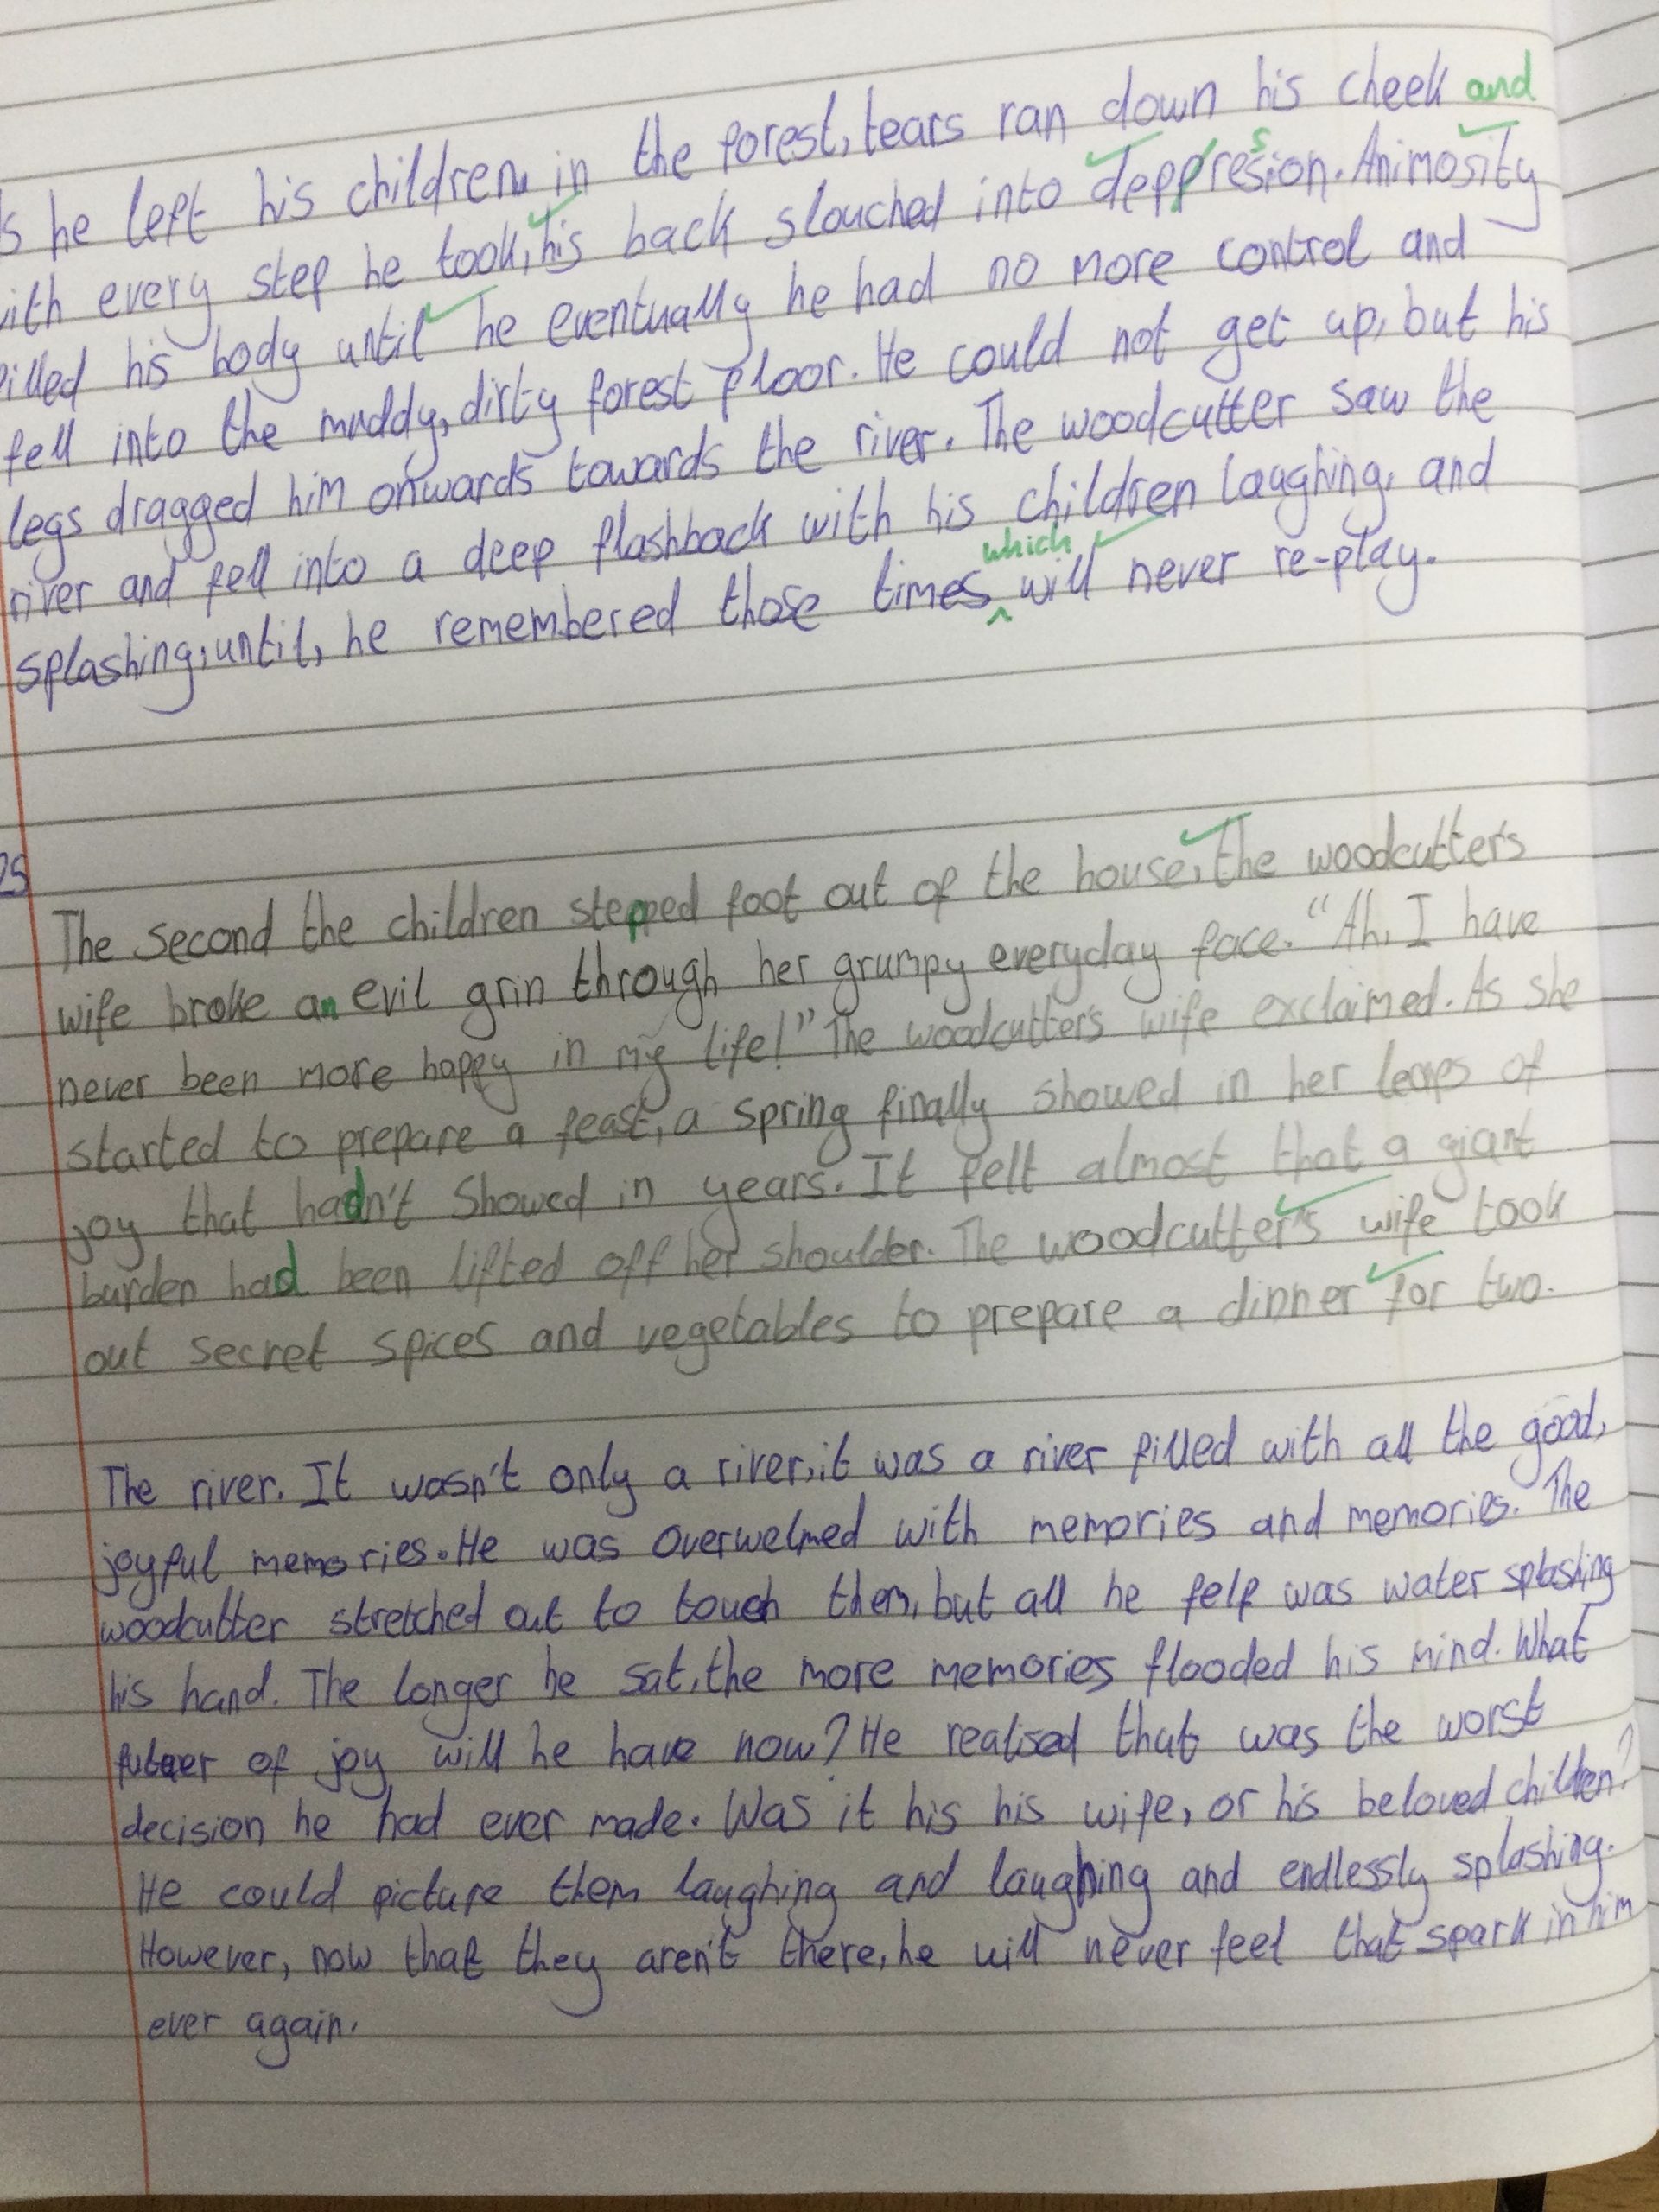 s he left his children in the forest, tears ran down his cheek and
ith every step he took, his back slouched into deppression. Animosity
illed his body until he eventually he had no more control and
fell into the muddy, dirty forest floor. He could not get up, but his
legs dragged him onwards towards the river. The woodcutter saw the
river and fell into a deep flashback with his children laughing, and
which
splashing, until, he remembered those times ^ will never re-play.
25
The second the children stepped foot out of the house, the woodcutter's
wife broke an evil grin through her grumpy everyday face. "Ah, I have
never been more happy in my life!" The woodcutter's wife exclaimed. As she
started to prepare a feast, a spring finally showed in her leaps of
joy that hadn't showed in years. It felt almost that a giant
burden had been lifted off her shoulder. The woodcutter's wife took
out secret spices and vegetables to prepare a dinner for two.
The river. It wasn't only a river, it was a river filled with all the good,
joyful memories. He was overwelmed with memories and memories. The
woodcutter stretched out to touch them, but all he felf was water splashing
his hand. The longer he sat, the more memories flooded his mind. What
of joy will he have now? He realised that was the worst
decision he had ever made. Was it his his wife, or his beloved children?
He could picture them laughing and laughing and endlessly splashing.
However, now that they aren't there, he will never feel that spark in him
ever again.